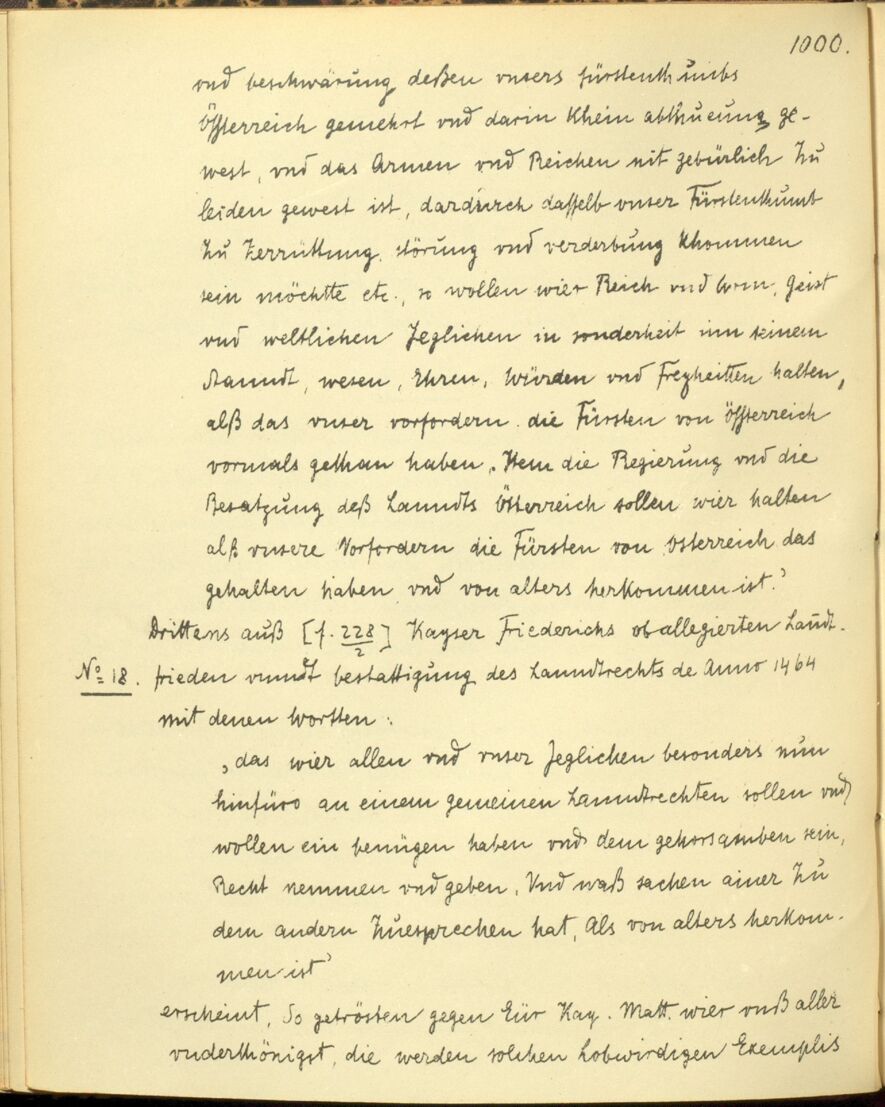 1000.
vnd beschwärung deßen vnsers fürstenthumbs
Össterreich gemehrt vnd darin Khein abthueung ge-
west, vnd das Armen vnd Reichen nit gebürlich Zu
leiden gewest ist, dardurch dasselb vnser Fürstenthumb
Zu Zerrüttung, störung vnd verderbung Khommen
sein möchtte etc., so wollen wier Reich vnd Arm, Geist
vnd weltlichen Jeglichen in sonderheit inn seinem
Stanndt, wesen, Ehren, Würden vnd Freyheitten halten,
alß das vnser vorfordern die Fürsten von Össterreich
vormals gethan haben, Item die Regierung vnd die
Besatzung deß Lanndts Össterreich sollen wier halten
alß vnsere Vorfordern die Fürsten von Osterreich das
gehalten haben vnd von alters herkommen ist.'
Drittens auß [f. 228/2] Kayser Friederichs ob allegierten Landt-
No 18. frieden vnndt bestattigung des Lanndtrechts de Anno 1464
mit denen Wortten:
„das wier allen vnd vnser Jeglichen besonders nun
hinfüro an einem gemeinen Lanndtrechten sollen vnd
wollen ein benügen haben vnd dem gehorsamben sein,
Recht nemmen vnd geben, Vnd waß sachen ainer Zu
dem andern Zuesprechen hat, Als von alters herkom-
men ist'
erscheint, So getrösten gegen Eür Kay. Matt. wier vnß aller
vnderthönigst, die werden solchen Lobwirdigen Exemplis